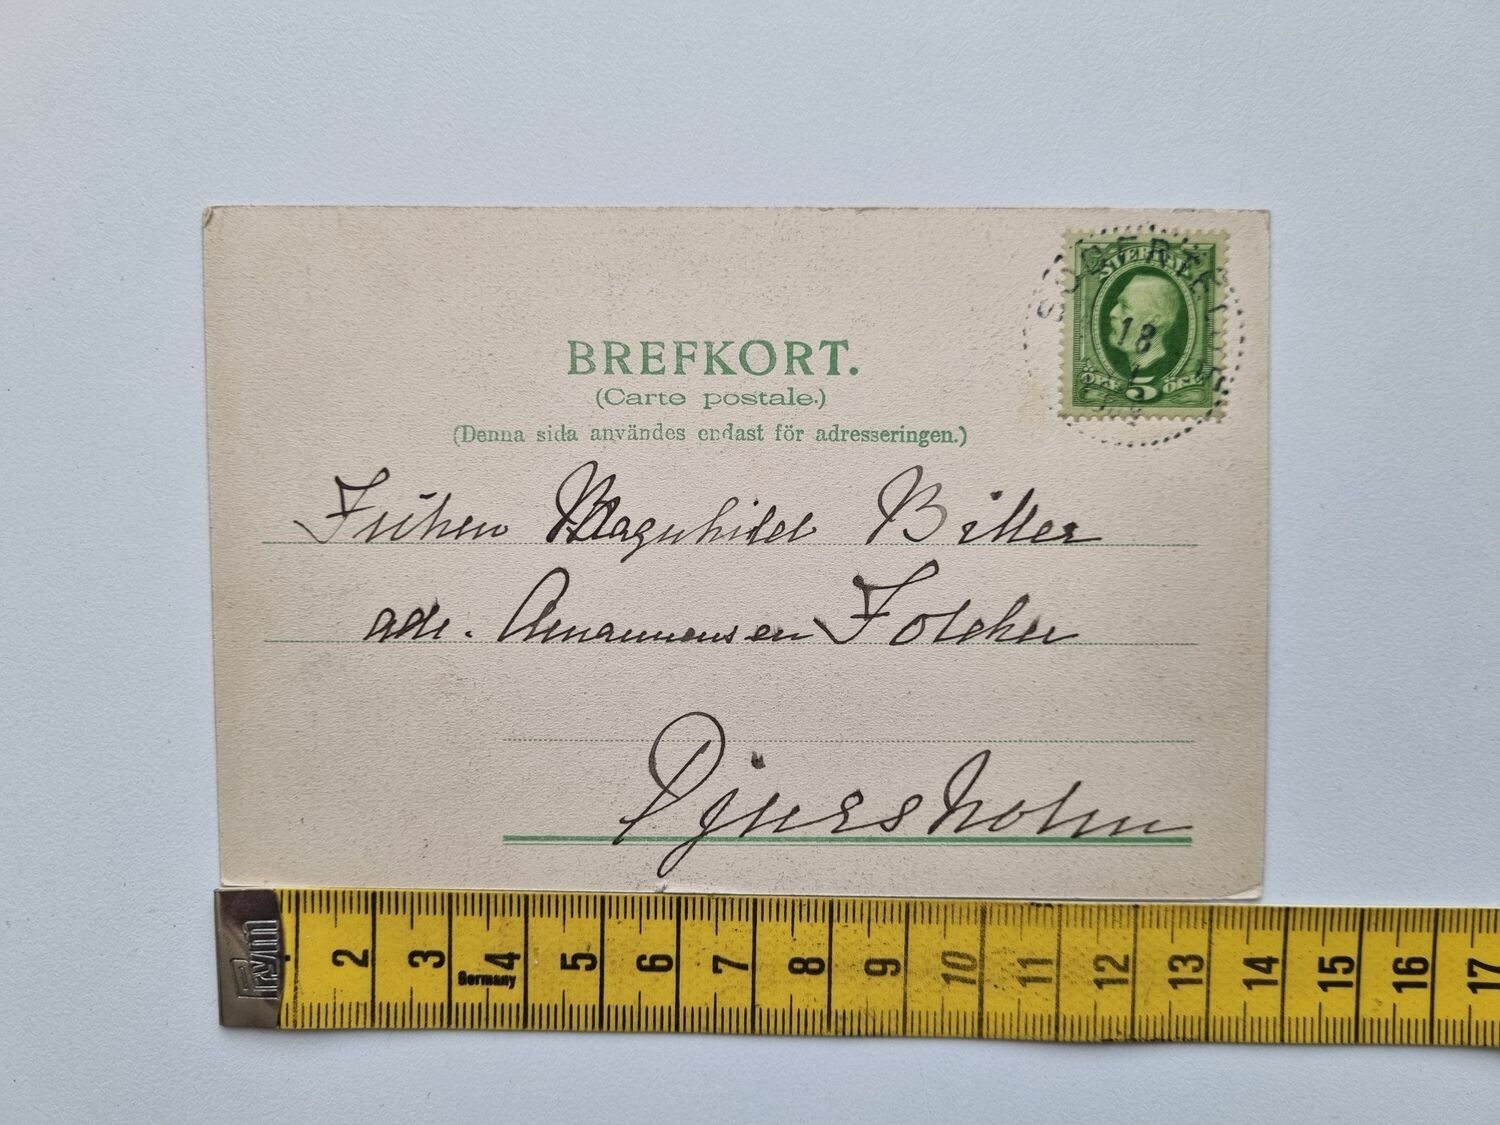 SVERIGE
18
ÖRE 5 ÖRE
BREFKORT.
(Carte postale.)
(Denna sida användes endast för adresseringen.)
Fröken Magnhild Biller
adr. Folcker
Djursholm
Prym
2 3 4 5 6 7 8 9 10 11 12 13 14 15 16 17
Germany